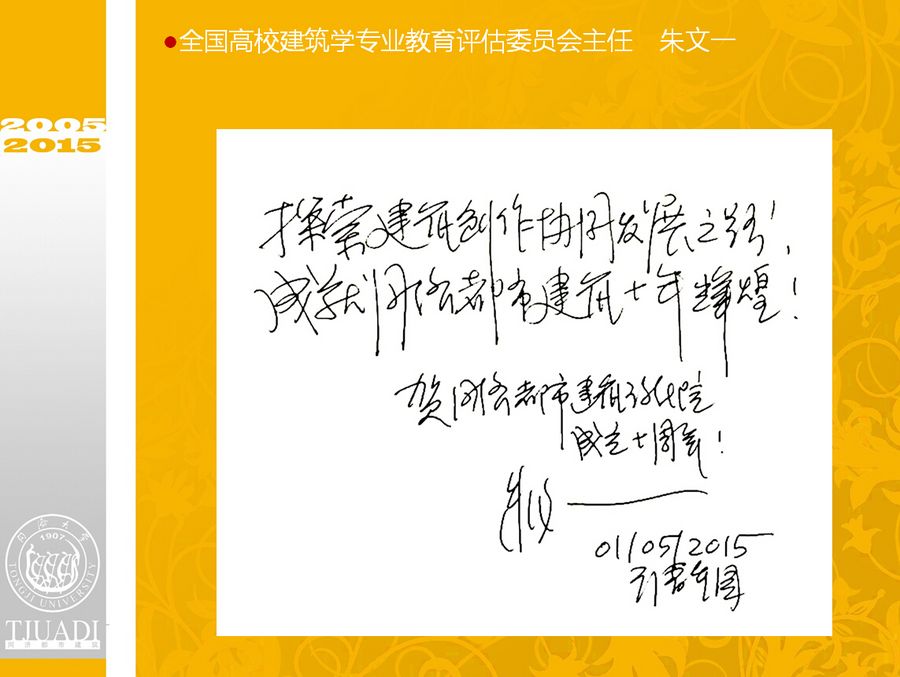 ●全国高校建筑学专业教育评估委员会主任 朱文一
2005
2015
探索建筑创作协同发展之路!
成就同济都市建筑十年辉煌!
贺同济都市建筑设计院
成立十周年!
朱文一
01/05/2015
同济大学
1907
TONGJI UNIVERSITY
TJUADI
同济都市建筑